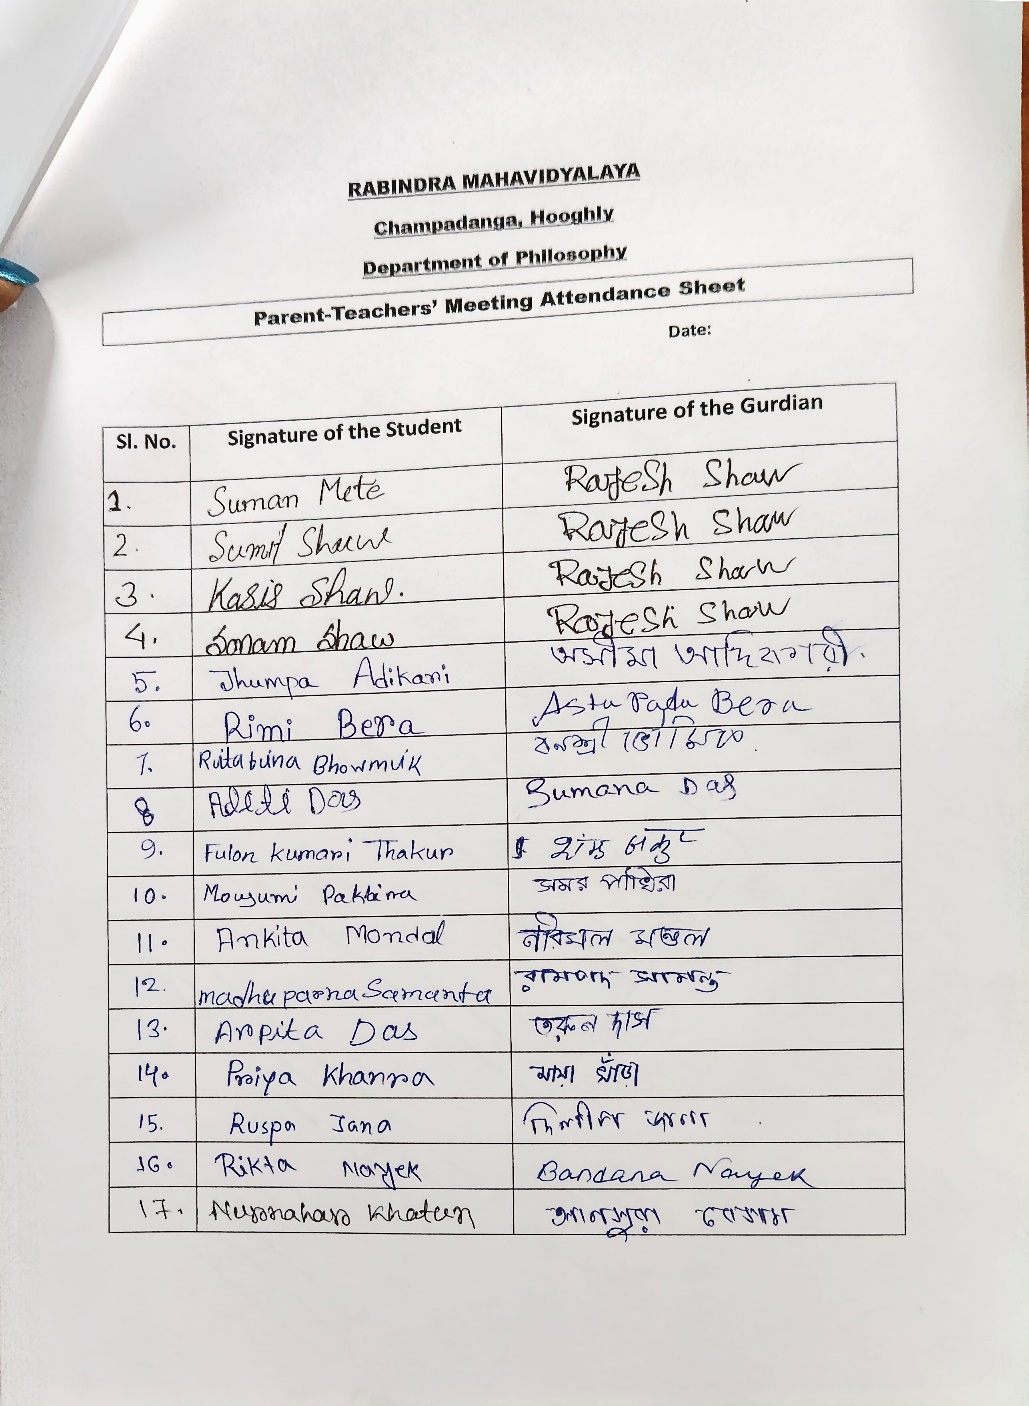 RABINDRA MAHAVIDYALAYA
Champadanga, Hooghly
Department of Philosophy
Parent-Teachers' Meeting Attendance Sheet
Date:
Sl. No. Signature of the Student Signature of the Gurdian
1. Suman Mete Rajesh Shaw
2. Sumit Shaw Rajesh Shaw
3. Kasis Shaw. Rajesh Shaw
4. Sonam Shaw Rajesh Shaw
5. Jhumpa Adikari অসীমা আদিকারী.
6. Rimi Bera Astu Pada Bera
7. Ritabrina Bhowmik বনশ্রী ভৌমিক.
8 Aditi Das Sumana Das
9. Fulon Kumari Thakur
10. Mousumi Pakhira অমর পাখিরা
11. Ankita Mondal মণ্ডল
12. madhuparna Samanta রামপদ সামন্ত
13. Arpita Das তরুন দাস
14. Priya Khanra মায়া খাঁড়া
15. Ruspa Jana দিলীপ জানা
16. Rikta Nayek Bandana Nayek
17. Nurnahar Khatun বেগম